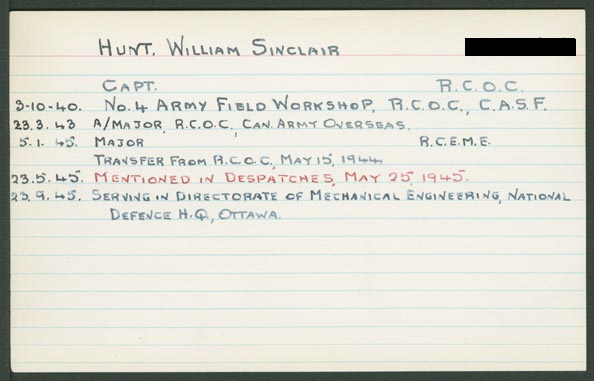 HUNT, WILLIAM SINCLAIR
CAPT. R.C.O.C.
3-10-40. NO. 4 ARMY FIELD WORKSHOP, R.C.O.C., C.A.S.F.
23.3.43 A/MAJOR, R.C.O.C., CAN. ARMY OVERSEAS.
5.1.45. MAJOR R.C.E.M.E.
TRANSFER FROM R.C.O.C., MAY 15, 1944
23.5.45. MENTIONED IN DESPATCHES, MAY 25, 1945.
25.9.45. SERVING IN DIRECTORATE OF MECHANICAL ENGINEERING, NATIONAL
DEFENCE H.Q., OTTAWA.